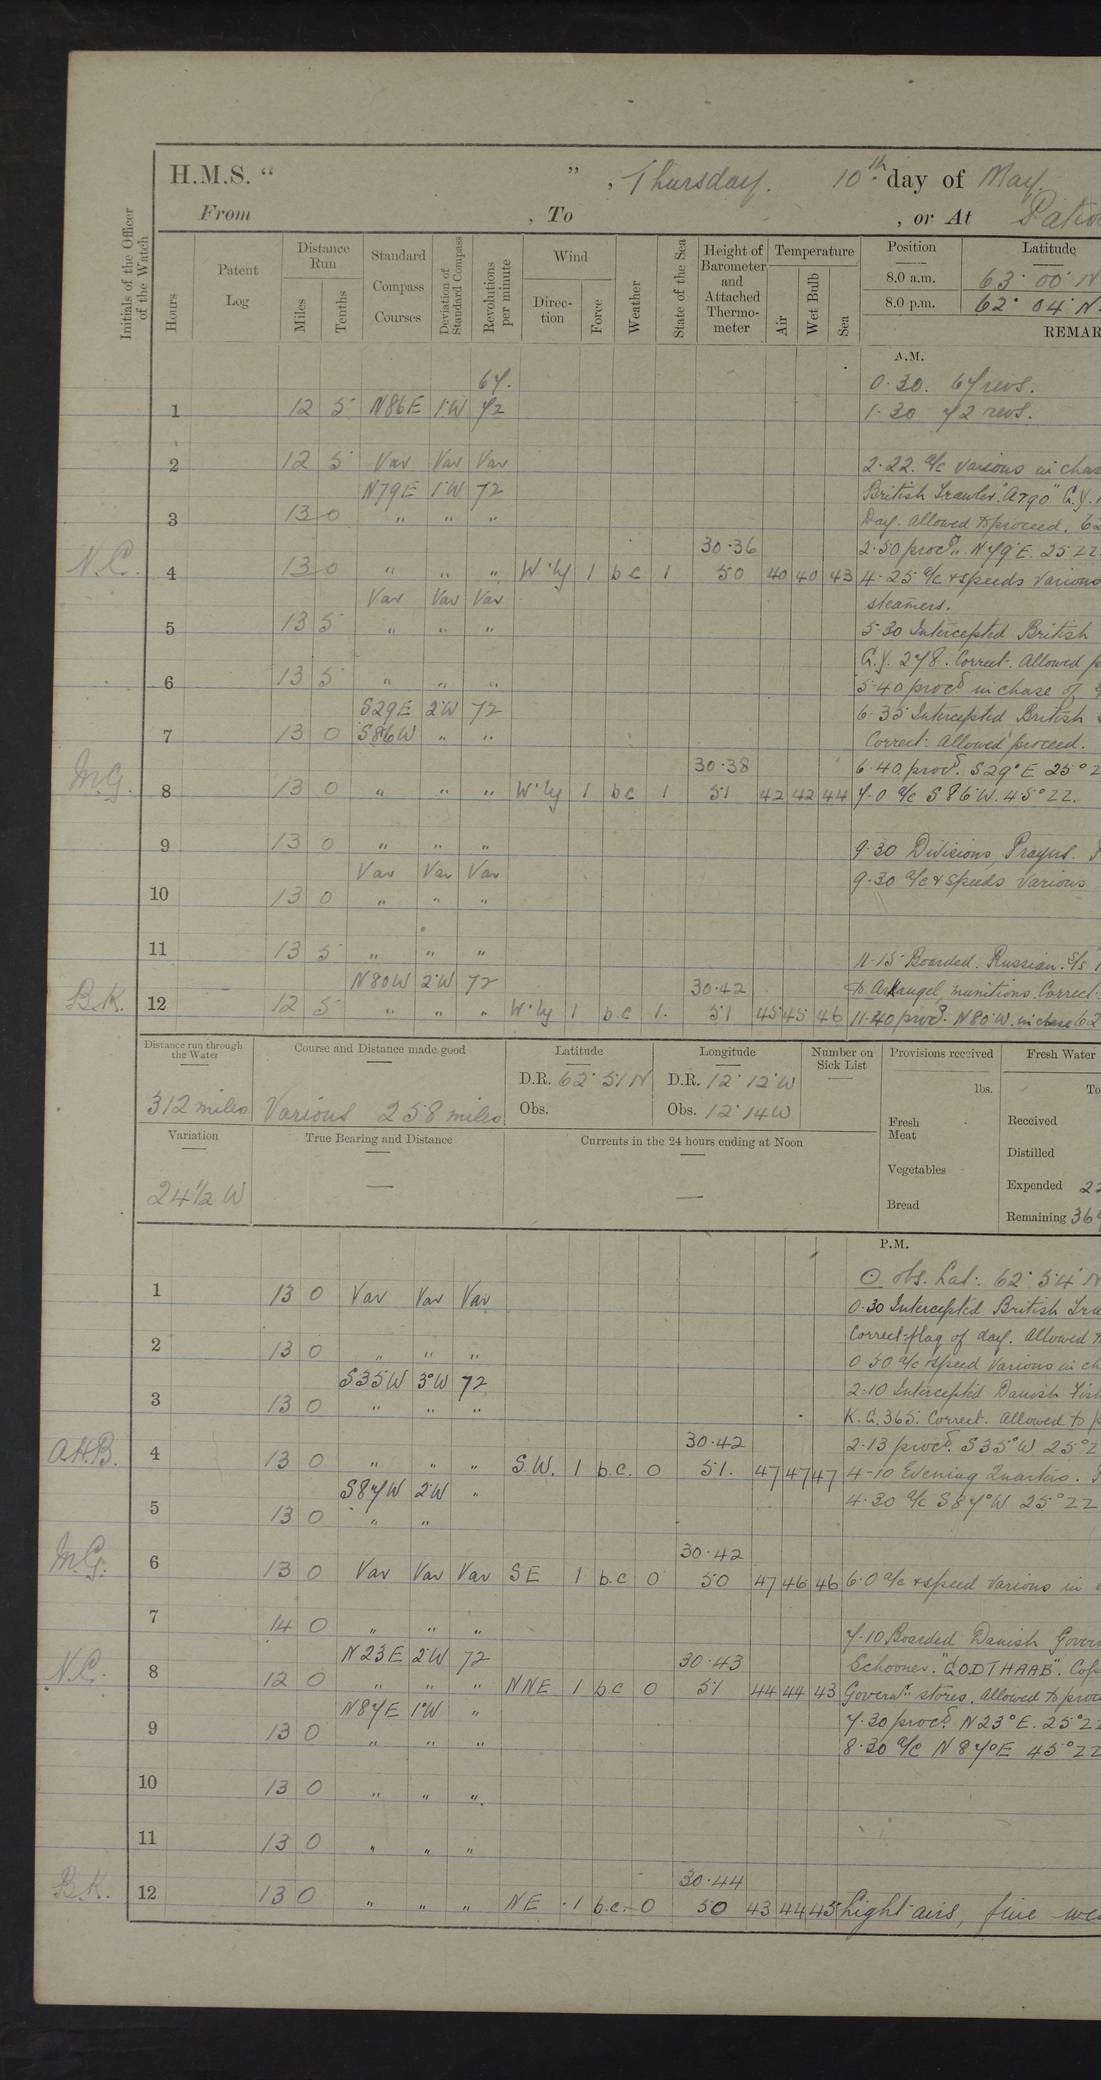 H.M.S. “ ” , Thursday. 10th day of May.
From , To , or At
Initials of the Officer of the Watch
Hours
Patent Log
Distance Run
Miles
Tenths
Standard Compass Courses
Deviation of Standard Compass
Revolutions per minute
Wind
Direction
Force
Weather
State of the Sea
Height of Barometer and Attached Thermometer
Temperature
Air
Wet Bulb
Sea
Position Latitude
8.0 a.m. 63° 00' N
8.0 p.m. 62° 04' N.
REMAR
A.M.
67. 0.30. 67 revs.
1 12 5 N86E 1°W 72 1.30 72 revs.
2 12 5 Var Var Var 2.22. a/c various in chas
N79E 1°W 72 British Trawler "Argo" G.Y.
3 13 0 " " " Day. Allowed to proceed. 62
30.36 2.50 procd. N79°E. 25 ZZ.
N.C. 4 13 0 " " " W'ly 1 bc 1 50 40 40 43 4.25 a/c & speeds various
Var Var Var steamers.
5 13 5 " " " 5.30 Intercepted British
G.Y. 278. Correct. Allowed p
6 13 5 " " " 5.40 procd. in chase of
S29E 2°W 72 6.35 Intercepted British
7 13 0 S86W " " Correct. Allowed proceed.
30.38 6.40 procd. S29°E 25° Z
M.G. 8 13 0 " " " W'ly 1 bc 1 51 42 42 44 7.0 a/c S86°W. 45° ZZ.
9 13 0 " " " 9.30 Divisions, Prayers.
Var Var Var 9.30 a/c & speeds various
10 13 0 " " "
11 13 5 " " " 11.15 Boarded. Russian. S/S
N80W 2°W 72 30.42 to Arkangel, munitions. Correct.
B.K. 12 12 5 " " " W'ly 1 b.c 1. 51 45 45 46 11.40 procd. N80°W. in chase 62
Distance run through the Water
312 miles
Course and Distance made good
Various 258 miles
Latitude
D.R. 62° 51' N
Obs.
Longitude
D.R. 12° 12' W
Obs. 12° 14 W
Number on Sick List
Provisions received
lbs.
Fresh Meat
Vegetables
Bread
Fresh Water
To
Received
Distilled
Expended 22
Remaining 36
Variation
24 1/2 W
True Bearing and Distance
—
Currents in the 24 hours ending at Noon
—
P.M.
⊙ obs. Lat. 62° 54' N
1 13 0 Var Var Var 0.30 Intercepted British Tra
2 13 0 " " " Correct flag of day. Allowed t
0.50 a/c & speed various in ch
S35W 3°W 72 2.10 Intercepted Danish Fish
3 13 0 " " " K.G. 365. Correct. Allowed to p
30.42 2.13 procd. S35°W 25° Z
A.H.B. 4 13 0 " " " S.W. 1 b.c. 0 51. 47 47 47 4-10 Evening Quarters.
S87W 2°W " 4.30 a/c S87°W 25° ZZ
5 13 0 " "
30.42
M.G. 6 13 0 Var Var Var SE 1 b.c 0 50 47 46 46 6.0 a/c & speed various in
7 14 0 " " " 7.10 Boarded Danish Govern
N23E 2°W 72 30.43 Schooner. "GODTHAAB".
N.C. 8 12 0 " " " NNE 1 b.c 0 51 44 44 43 Governt. stores. Allowed to proc
N87E 1°W " 7.30 procd. N23°E. 25° ZZ
9 13 0 " " " 8.30 a/c N87°E 45° ZZ
10 13 0 " " "
11 13 0 " " "
30.44
B.K. 12 13 0 " " " NE 1 b.c. 0 50 43 44 45 Light airs, fine we